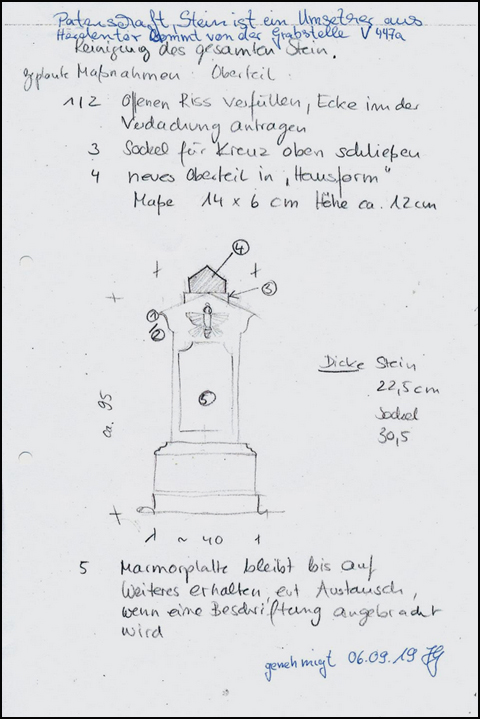 Patenschaft, Stein ist ein Umsetzer aus
Herslentor kommt von der Grabstelle V 447a
Reinigung des gesamten Stein.
geplante Maßnahmen: Oberteil:
1/2 Offenen Riss verfüllen, Ecke in der
Verdachung antragen
3 Sockel für Kreuz oben schließen
4 neues Oberteil in „Hausform"
Maße 14 x 6 cm Höhe ca. 12 cm
4
3
1
2
Dicke Stein
22,5 cm
Sockel
30,5
5
ca. 95
~ 40
5 Marmorplatte bleibt bis auf
weiteres erhalten, evt Austausch,
wenn eine Beschriftung angebracht
wird
genehmigt 06.09.19